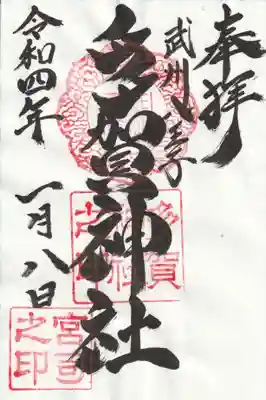 奉拝
武州八王子
多賀神社
令和四年
一月八日
多賀
宮司
之印